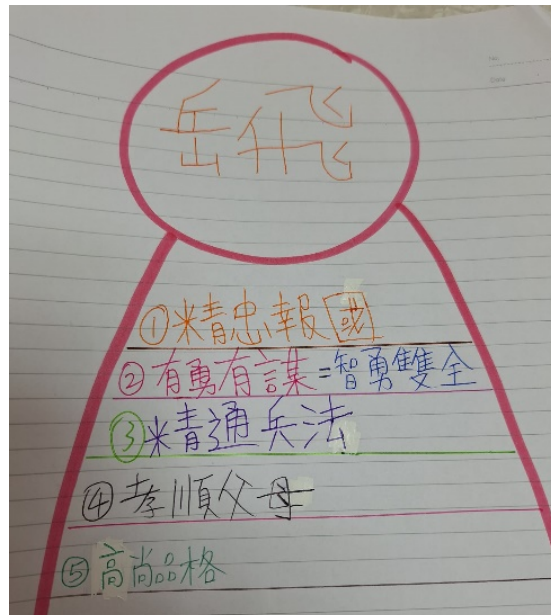 岳飛
①精忠報國
②有勇有謀=智勇雙全
③精通兵法
④孝順父母
⑤高尚品格